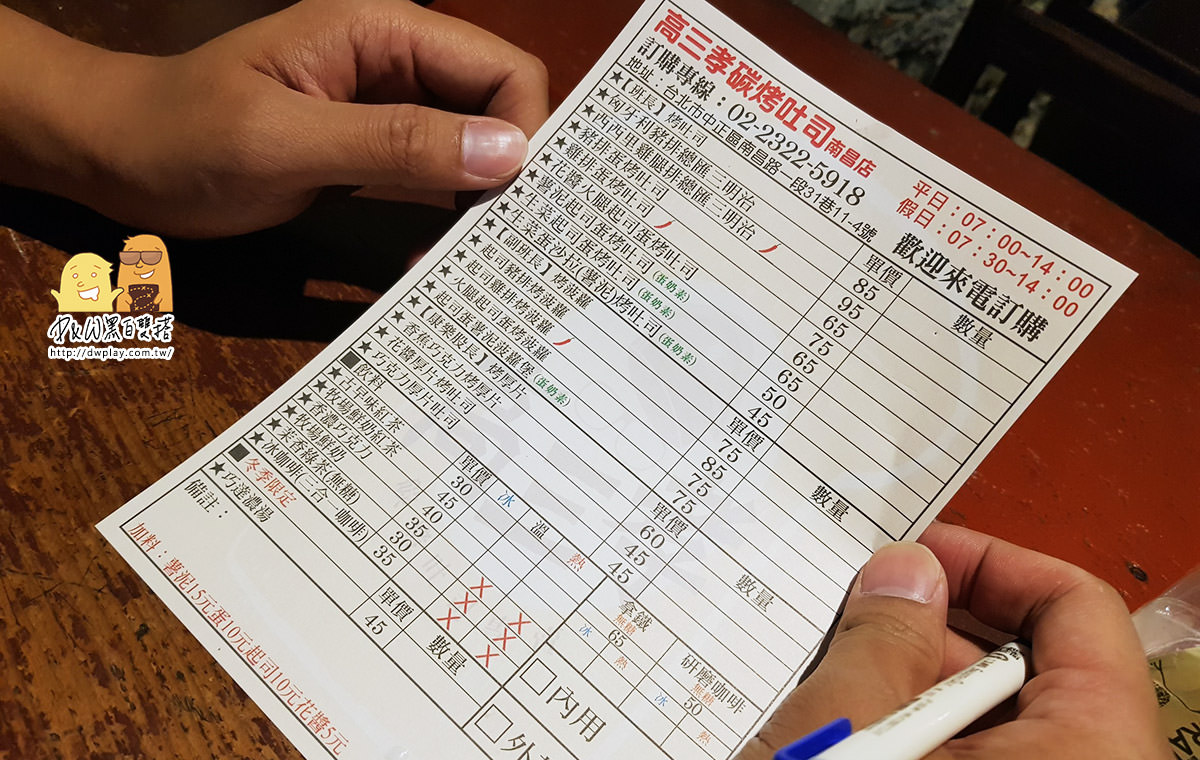 高三孝碳烤吐司南昌店
訂購專線：02-2322-5918
地址：台北市中正區南昌路一段31巷11-4號
平日：07：00~14：00
假日：07：30~14：00
歡迎來電訂購
★【班長】烤吐司 單價 數量
★匈牙利豬排總匯三明治 85
★西西里雞腿排總匯三明治 95
★豬排蛋烤吐司 65
★雞排蛋烤吐司 75
★花醬火腿起司蛋烤吐司 65
★薯泥起司蛋烤吐司(蛋奶素) 65
★生菜起司蛋烤吐司(蛋奶素) 50
★生菜蛋沙拉(薯泥)烤吐司(蛋奶素) 45
★【副班長】烤波蘿 單價 數量
★起司豬排烤波蘿 75
★起司雞排烤波蘿 85
★火腿起司蛋烤波蘿 75
★起司蛋薯泥波蘿堡(蛋奶素) 75
★【康樂股長】烤厚片 單價 數量
★香蕉巧克力烤厚片 60
★花醬厚片吐司 45
★巧克力厚片吐司 45
■飲料 單價 冰 溫 熱
★古早味紅茶 30
★牧場鮮奶紅茶 45
★香濃巧克力 40
★牧場鮮奶 35
★茉香綠茶(無糖) 30
★冰咖啡(三合一咖啡) 35
拿鐵 無糖 65 冰 熱
研磨咖啡 無糖 50 冰 熱
■冬季限定 單價 數量
★巧達濃湯 45
備註：
□內用
□外
加料：薯泥15元蛋10元起司10元花醬5元
黑白雙搭
http://dwplay.com.tw/